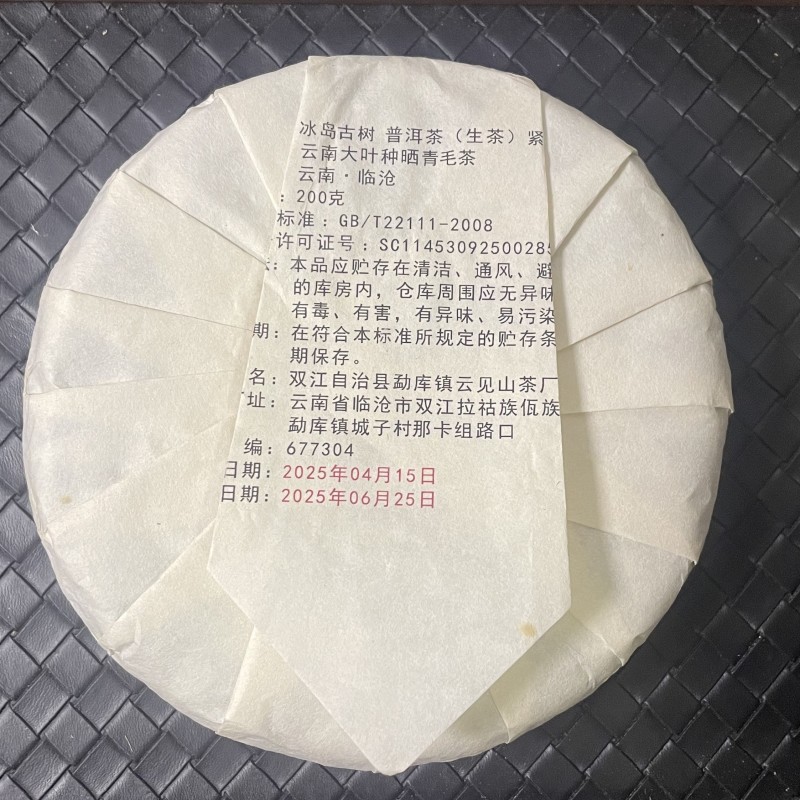 冰岛古树 普洱茶（生茶）紧
云南大叶种晒青毛茶
云南·临沧
：200克
标准：GB/T22111-2008
许可证号：SC1145309250028
：本品应贮存在清洁、通风、避
的库房内，仓库周围应无异味
有毒、有害，有异味、易污染
期：在符合本标准所规定的贮存条
期保存。
名：双江自治县勐库镇云见山茶厂
址：云南省临沧市双江拉祜族佤族
勐库镇城子村那卡组路口
编：677304
日期：2025年04月15日
日期：2025年06月25日